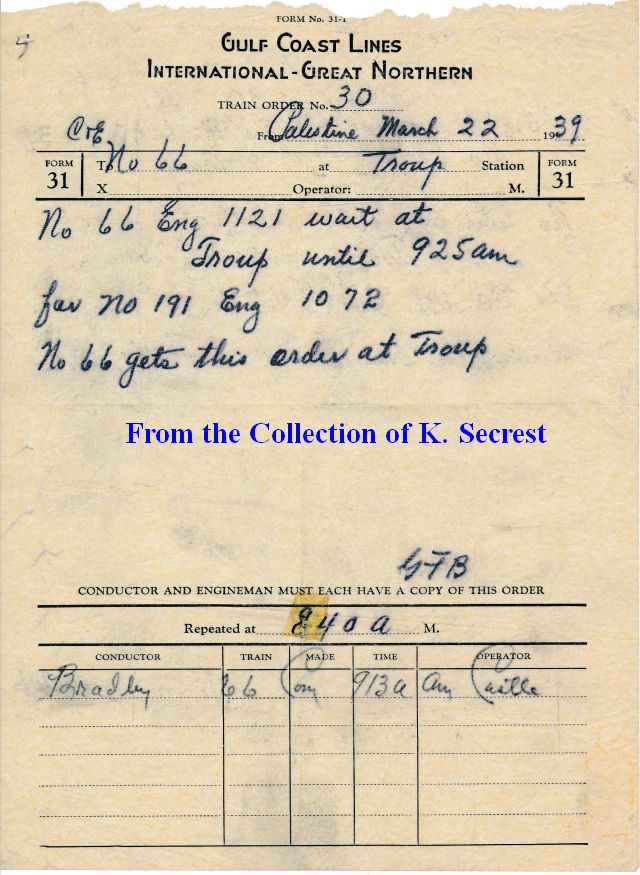 FORM No. 31-1
GULF COAST LINES
INTERNATIONAL-GREAT NORTHERN
TRAIN ORDER No. 30
From Palestine March 22 1939
C&E
FORM 31
To No 66 at Troup Station
X Operator: M.
FORM 31
No 66 Eng 1121 wait at
Troup until 925am
for No 191 Eng 1072
No 66 gets this order at Troup
From the Collection of K. Secrest
GFB
CONDUCTOR AND ENGINEMAN MUST EACH HAVE A COPY OF THIS ORDER
Repeated at 840 A M.
CONDUCTOR TRAIN MADE TIME OPERATOR
Bradley 66 Com 913a Castle